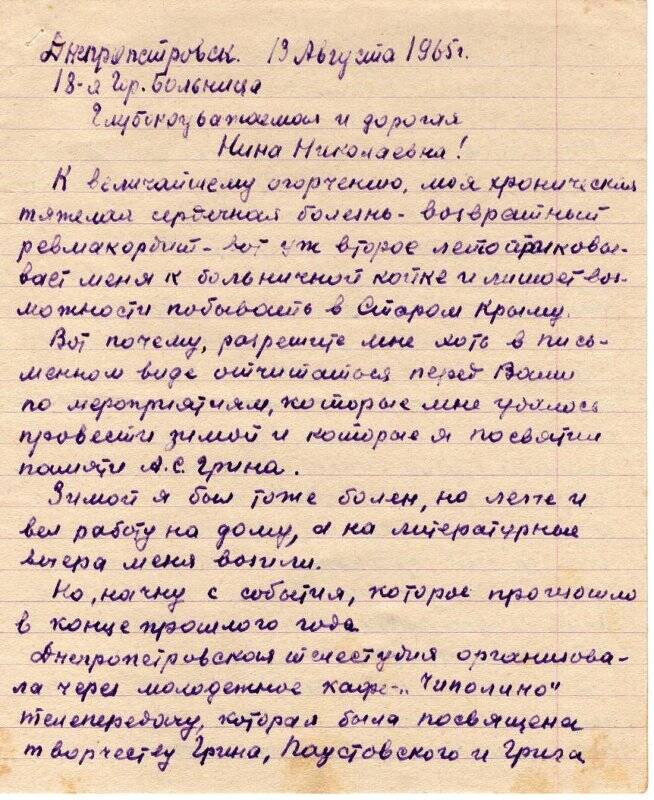 Днепропетровск. 13 Августа 1965г.
18-я Гор. больница
Глубокоуважаемая и дорогая
Нина Николаевна!
К величайшему огорчению, моя хроническая
тяжелая сердечная болезнь - возвратный
ревмакордит - вот уж второе лето приковы-
вает меня к больничной койке и лишает воз-
можности побывать в Старом Крыму.
Вот почему, разрешите мне хоть в пись-
менном виде отчитаться перед Вами
по мероприятиям, которые мне удалось
провести зимой и которые я посвятил
памяти А.С. Грина.
Зимой я был тоже болен, но лежа и
вел работу на дому, а на литературные
вечера меня возили.
Но, начну с события, которое произошло
в конце прошлого года.
Днепропетровская телестудия организова-
ла через молодежное кафе - "Чиполино"
телепередачу, которая была посвящена
творчеству Грина, Паустовского и Грига